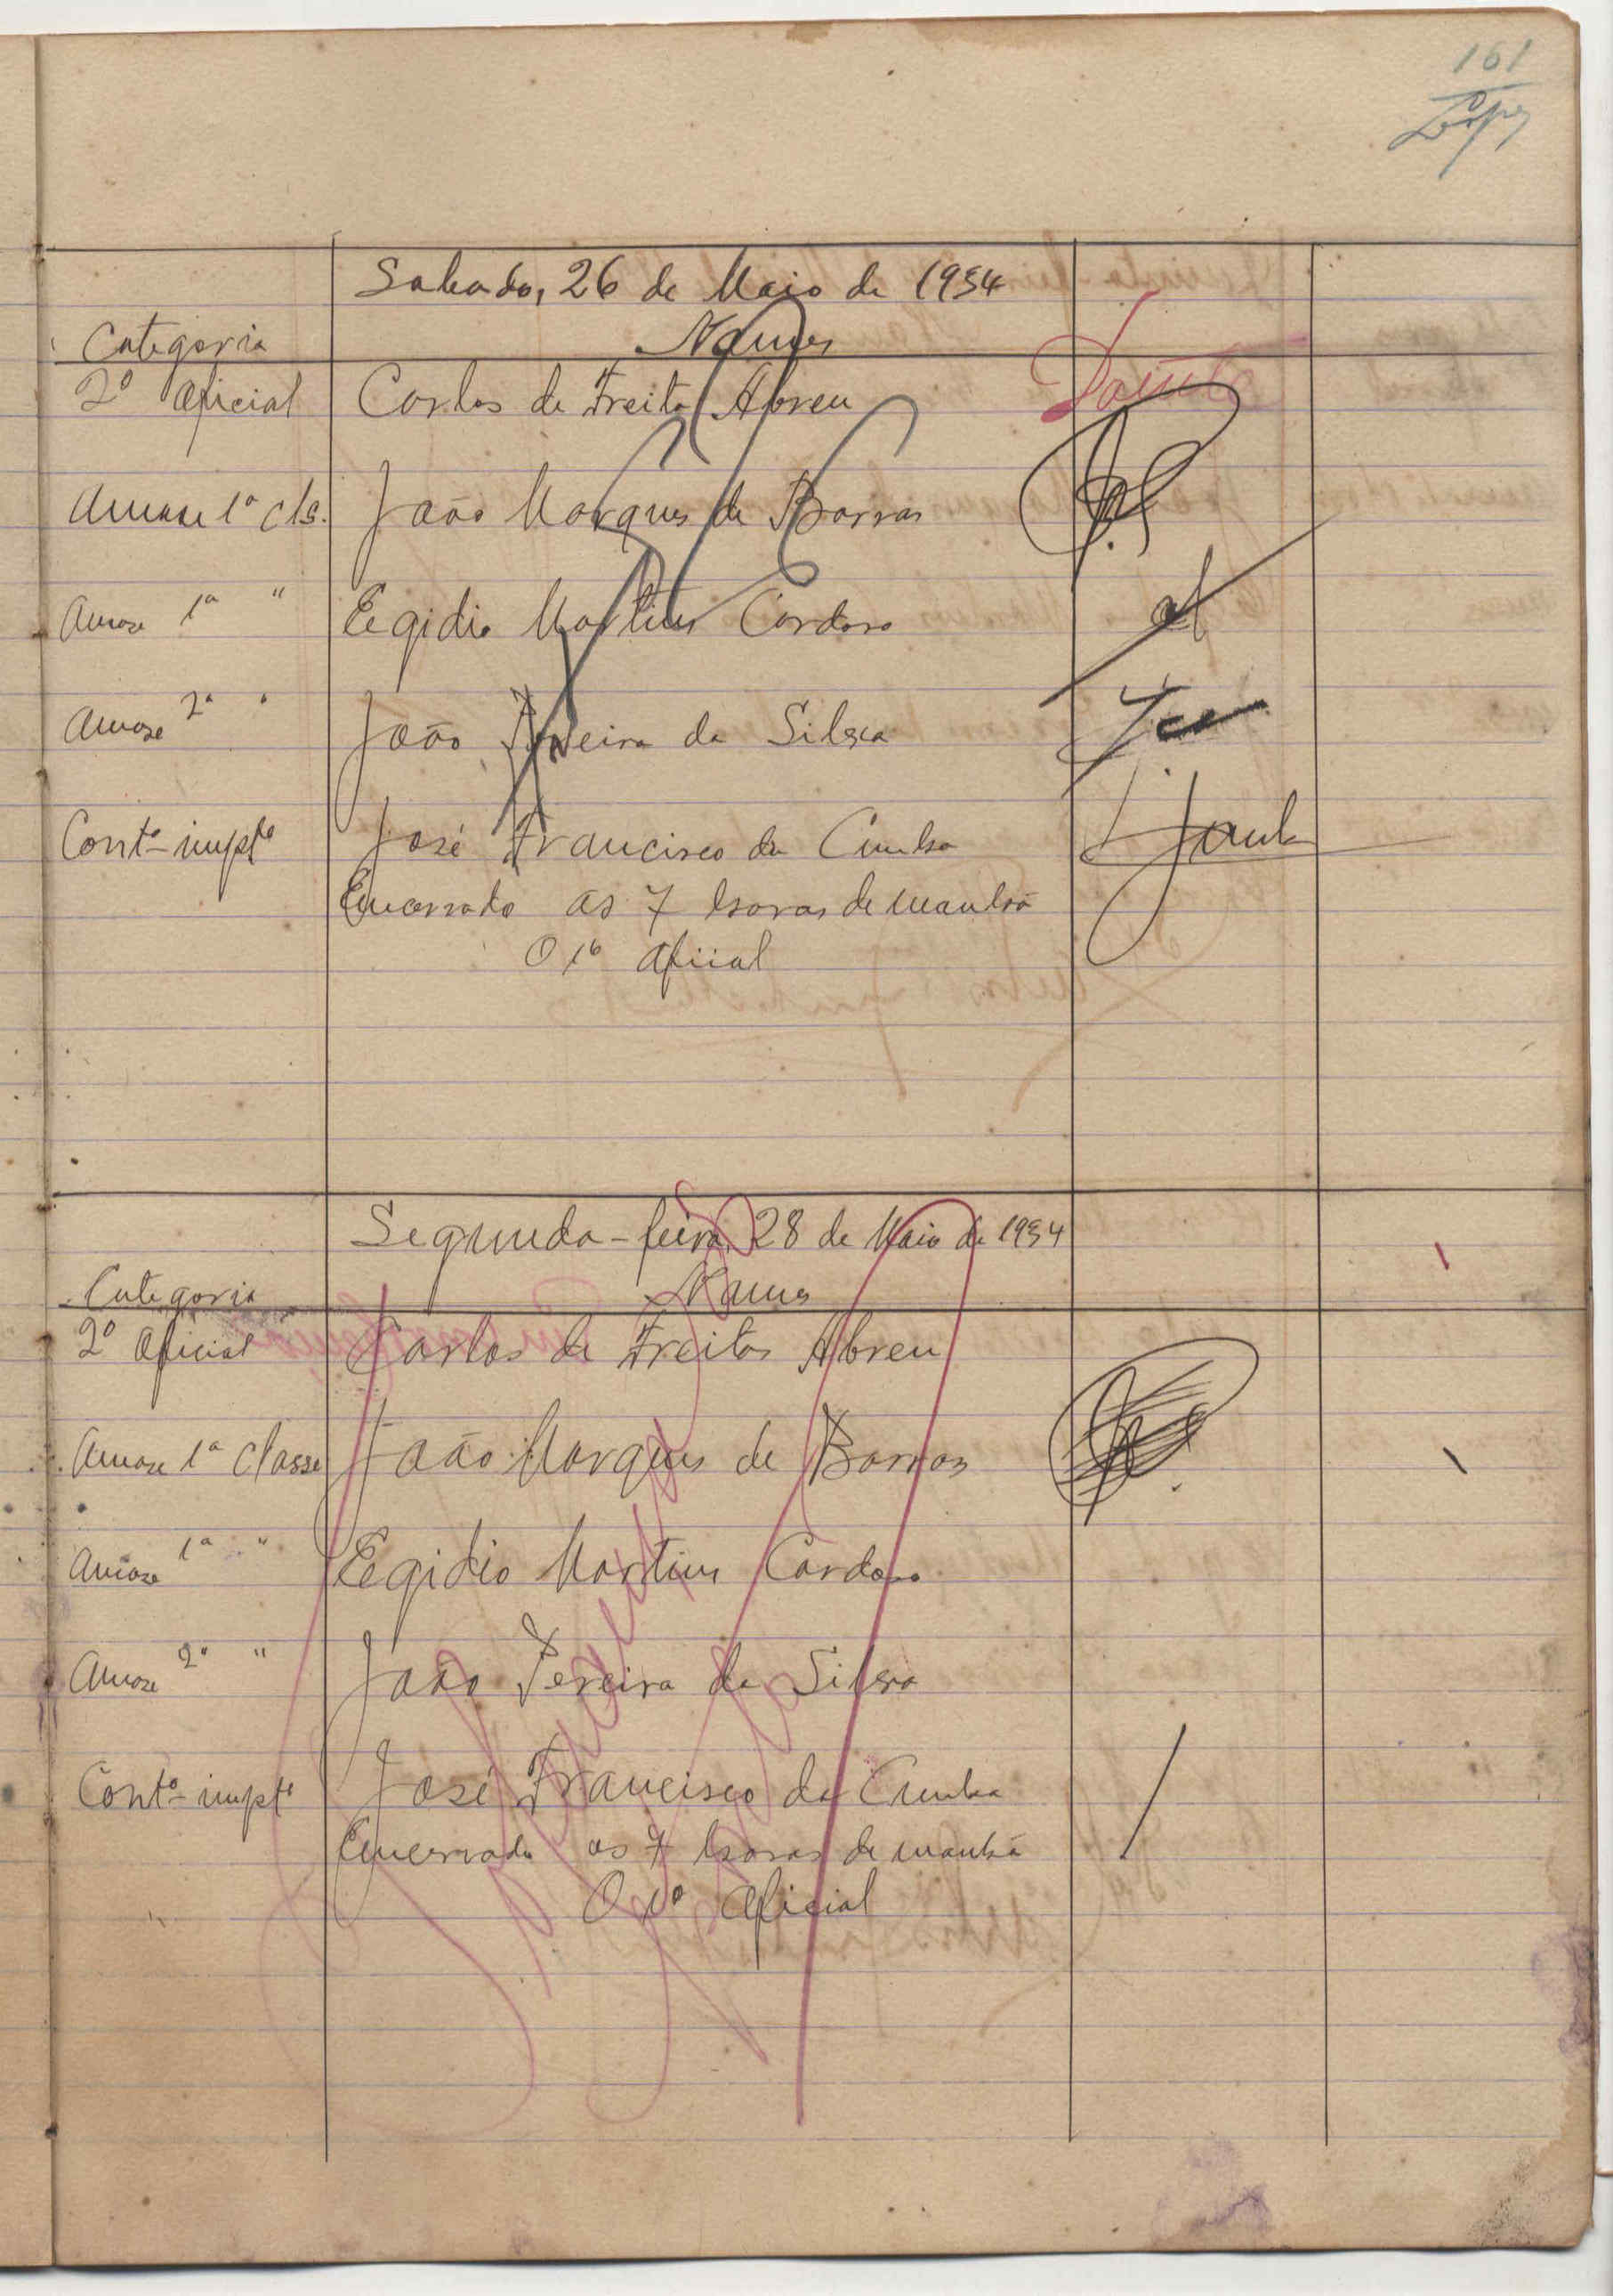 161
Lopes
Sabado, 26 de Maio de 1934
Categoria Nomes
2º Oficial Carlos de Freitas Abreu Doente
Amase 1ª cls. João Marques de Barros
Amase 1ª " Egidio Martins Cardoso
Amase 2ª " João Pereira da Silva
Contº impto José Francisco da Cunha
Encerrado as 7 horas de manhã
O 1º Oficial
Segunda-feira, 28 de Maio de 1934
Categoria Nomes
2º Oficial Carlos de Freitas Abreu
Amase 1ª classe João Marques de Barros
Amase 1ª " Egidio Martins Cardoso
Amase 2ª " João Pereira da Silva
Contº impto José Francisco da Cunha
Encerrado as 7 horas de manhã
O 1º Oficial